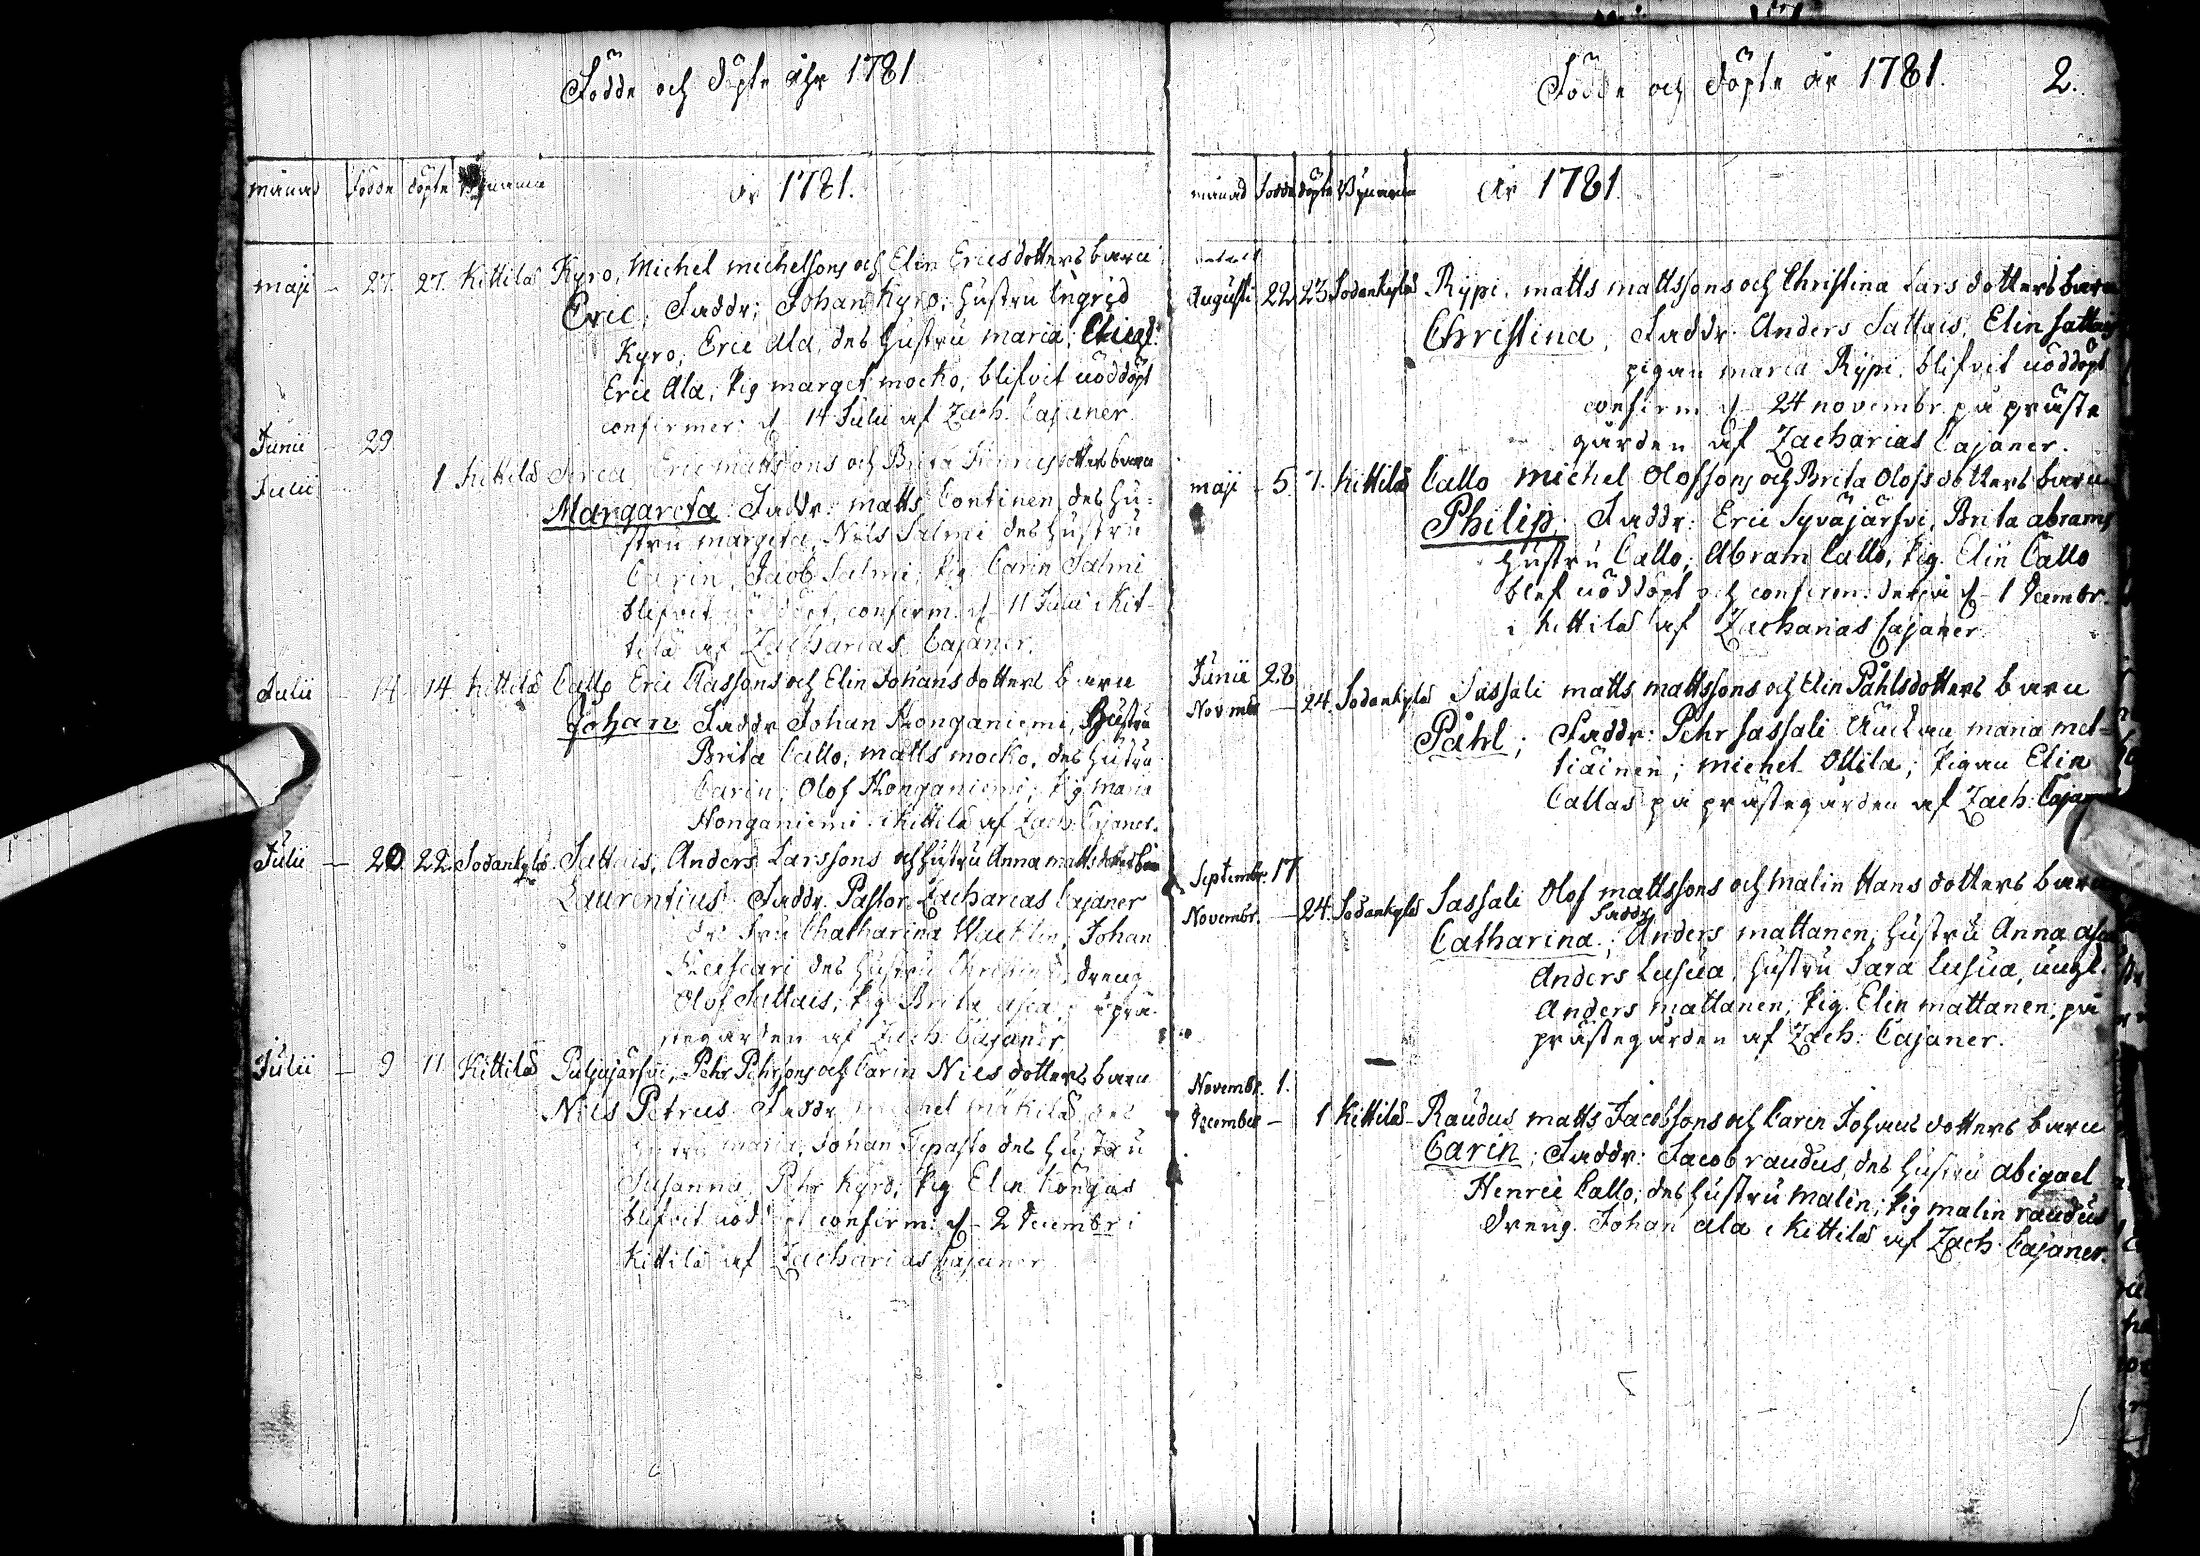 Födde och döpte åhr 1781
månad födde döpte Bynamn
år 1781.
maji - 27. 27. Kittilä Kyro, Michel michelsons och Elin Ericsdotters barn
Eric; Faddr; Johan Kyro; hustru Ingrid
Kyro, Eric Ala, des hustru maria,
Eric Ala, pig marget mocko, blifvit nöddöpt
confirmer: d 14 Julii af Zach. Cajaner
Junii - 29.
Julii 1 Kittilä Eric mattssons och Brita dotters barn
Margareta Faddr: matts Continen, des hu-
stru margeta, Nils Salmi des hustru
Carin, Jacob Salmi, pig Carin Salmi
blifvit nöddöpt, confirm. d 11 Julii i Kit-
tilä af Zacharias Cajaner.
Julii - 14 14 Kittilä Callo Eric Classons och Elin Johansdotters barn
Johan Faddr Johan Honganiemi, Hustru
Brita Callo, matts mocko, des hustru
Carin, Olof Honganiemi, pig maria
Honganiemi i Kittilä af Zach: Cajaner.
Julii - 20 22. Sodankylä. Sattais, Anders Larssons och hustru Anna mattsdotters barn
Laurentius Faddr. Pastor Zacharias Cajaner
fru Chatharina Wacklin, Johan
des hustru dreng
Olof Sattais, pig Brita
stegården af Zach Cajaner
Julii - 9 11 Kittilä Puljujärfvi, Pehr Pehrsons och Carin Nilsdotters barn
Nils Petrus Faddr michel mäkilä, des
hustru maria, Johan des hustru
Susanna, Pehr Kyrö, pig Elin Köngäs
blifvit nöddöpt confirm: d - 2 Decembr i
Kittilä af Zacharias Cajaner
Födde och döpte år 1781. 2.
månad födde döpte Bynamn År 1781.
Augusti 22 23 Sodankylä Rÿpi. matts mattssons och Christina Larsdotters barn
Christina, Faddr: Anders Sattais, Elin Sattais
pigan maria Rÿpi. blifvit nöddöpt
confirm d 24 novembr på präste
gården af Zacharias Cajaner.
maji - 5. 7. Kittilä Callo Michel Olofssons och Brita Olofsdotters barn
Philip. Faddr: Eric Syväjärfvi, Brita abrams
hustru Callo, Abram Callo, pig. Elin Callo
blef nöddöpt och confirm. d - 1 Decembr.
i Kittilä af Zacharias Cajaner
Junii 28
Novembr - 24. Sodankylä Sassali matts mattssons och Elin Påhlsdotters barn
Påhl; Faddr: Pehr Sassali Änckan maria met-
tiäinen; michel Ollila; pigan Elin
Callas på prästegården af Zach: Cajaner
Septembr. 17
Novembr. - 24. Sodankylä Sassali Olof mattssons och Malin Hansdotters barn
Faddr
Catharina; Anders mattanen, hustru Anna
Anders Lusua, hustru Sara Lusua, ungk.
Anders mattanen, pig. Elin mattanen, på
prästegården af Zach: Cajaner.
Novembr. 1.
December - 1 Kittilä Raudus matts Jacobssons och Carin Johansdotters barn
Carin; Faddr: Jacob raudus, des hustru abigael
Henric Callo, des hustru malin, pig malin raudus
Dreng. Johan ala i Kittilä af Zach: Cajaner.